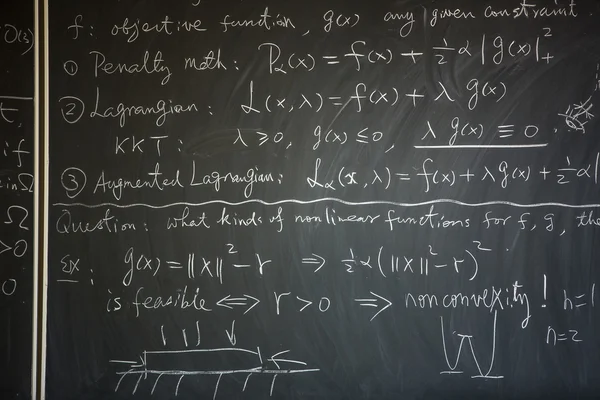 f: objective function, g(x) any given constraint.
① Penalty meth: Pα(x) = f(x) + ½ α |g(x)|²₊
② Lagrangian: L(x, λ) = f(x) + λ g(x)
KKT: λ ⩾ 0, g(x) ≤ 0, λ g(x) ≡ 0.
③ Augmented Lagrangian: Lα(x, λ) = f(x) + λ g(x) + ½ α |
Question: what kinds of nonlinear functions for f, g, the
Ex: g(x) = ||x||² - r ⇒ ½ α (||x||² - r)²
is feasible ⟺ r > 0 ⇒ nonconvexity! n=1
n=2
if
in Ω
Ω
>0
0